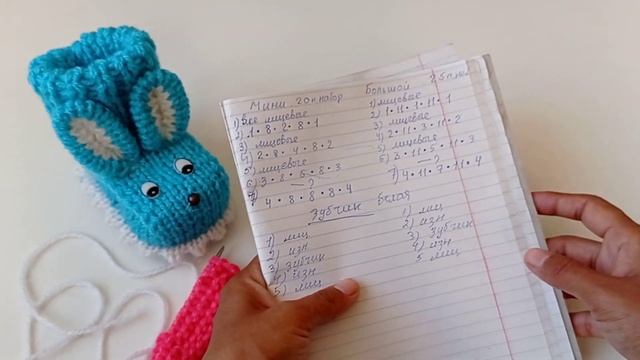 Мини 20 п набор
1) Все лицевые
2) 1 • 8 • 2 • 8 • 1
3) лицевые
4) 2 • 8 • 4 • 8 • 2
5) лицевые
6) 3 • 8 • 6 • 8 • 3
— ? —
7) 4 • 8 • 8 • 8 • 4
Большой 25 п
1) лицевые
2) 1 • 11 • 1 • 11 • 1
3) лицевые
4) 2 • 11 • 3 • 11 • 2
5) лицевые
6) 3 • 11 • 5 • 11 • 3
— ? —
7) 4 • 11 • 7 • 11 • 4
Зубчик белая
1) лиц
2) изн
3) зубчик
4) изн
5) лиц
1) лиц
2) изн
3) зубчик
4) изн
5 лиц